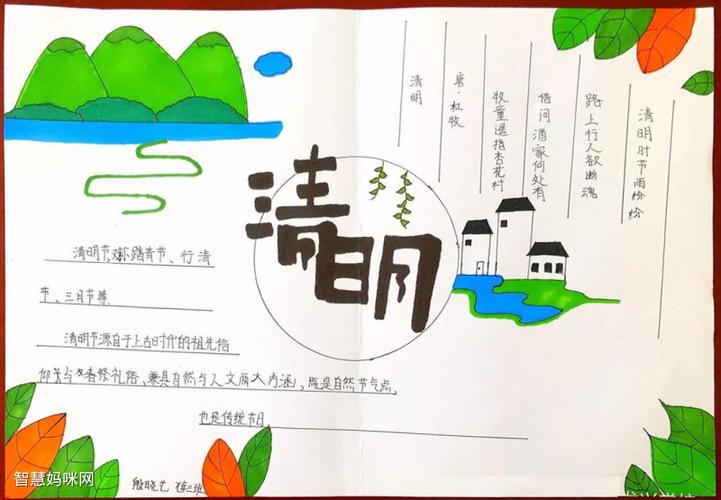 清明
清明时节雨纷纷
路上行人欲断魂
借问酒家何处有
牧童遥指杏花村
杜牧
清明
清明节 踏青节、行清
节、三月节等
清明节源自于上古时代的祖先
仰与春祭礼俗、兼具自然与人文两大内涵,既是自然节气点,
也是传统节日
殷晓艺
智慧妈咪网